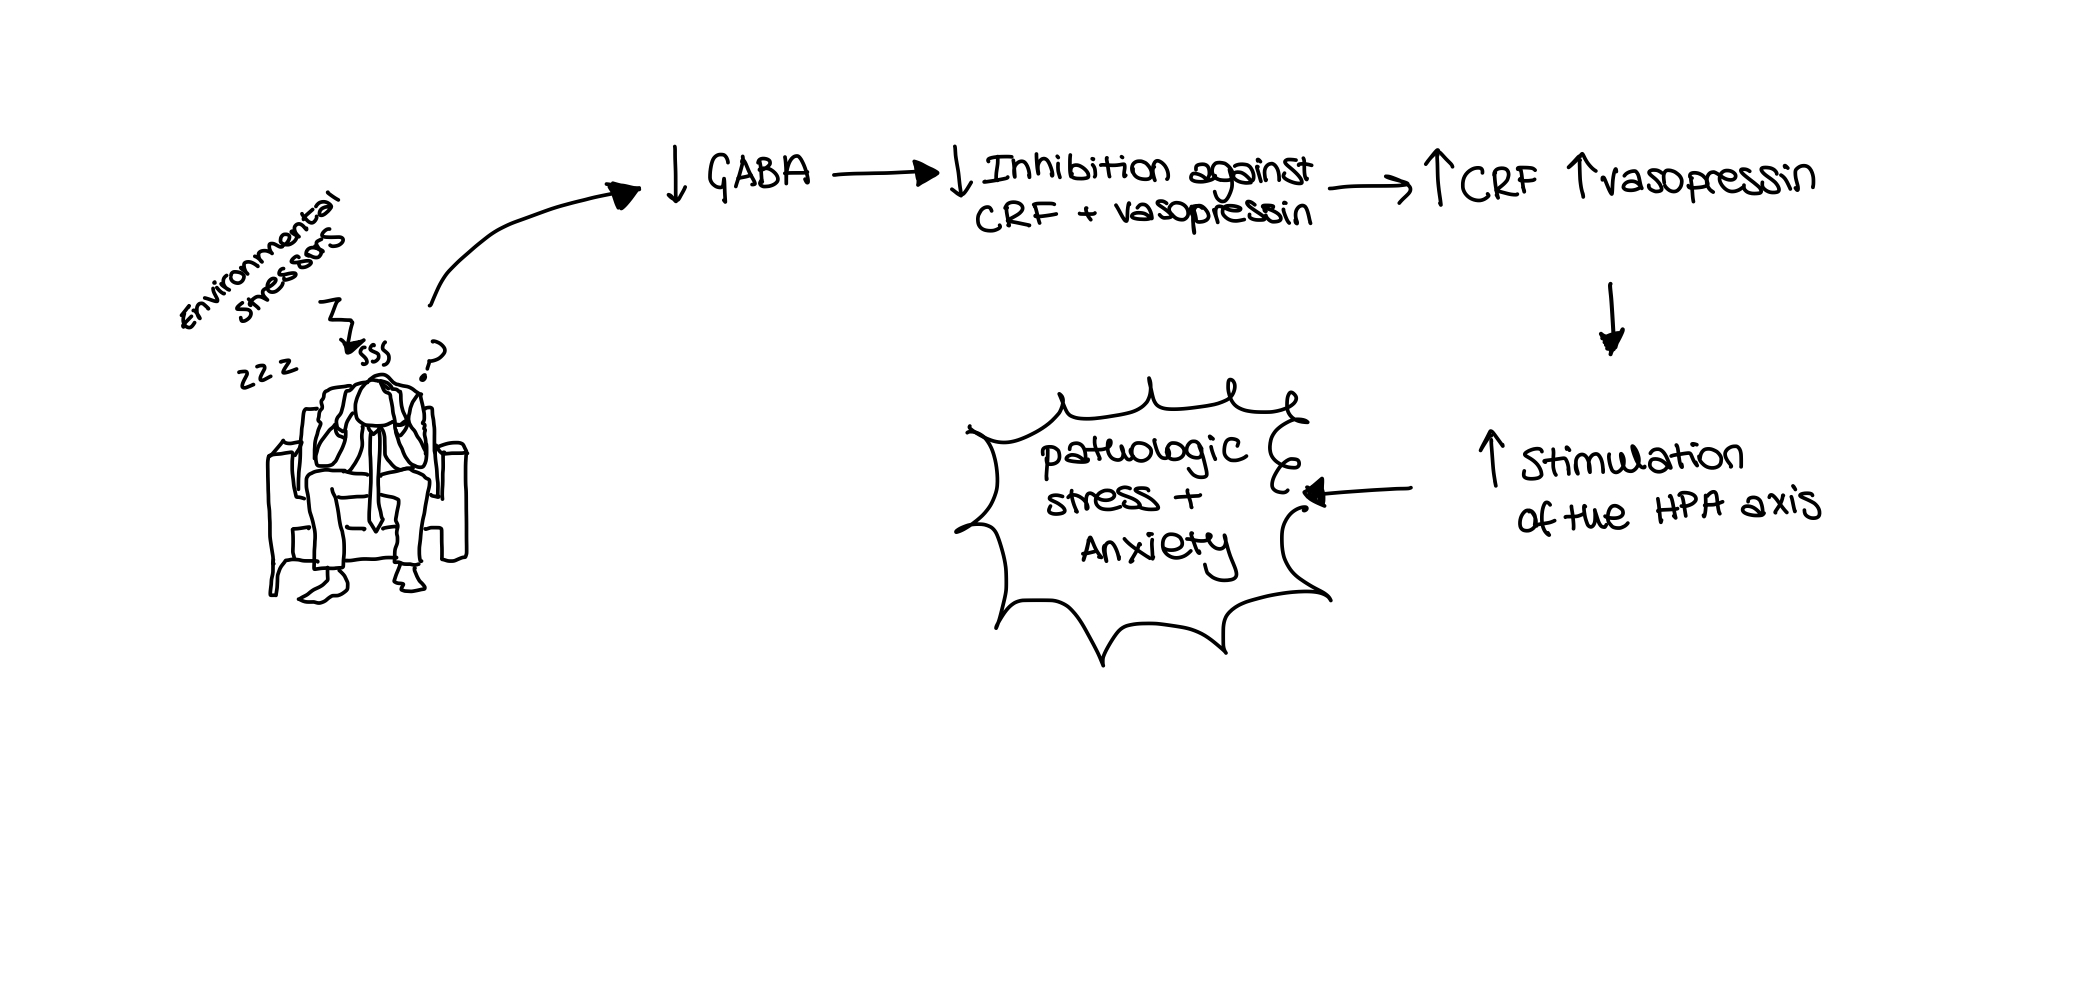 Environmental
stressors
zzz
sss
?
↓ GABA → ↓ Inhibition against
CRF + vasopressin → ↑ CRF ↑ vasopressin
↑ Stimulation
of the HPA axis
pathologic
stress +
Anxiety